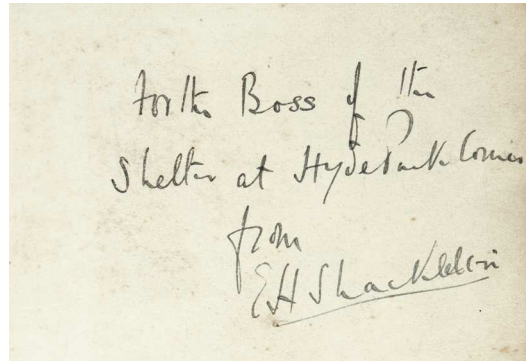 For the Boss of the
Shelter at Hyde Park Corner
from
EH Shackleton